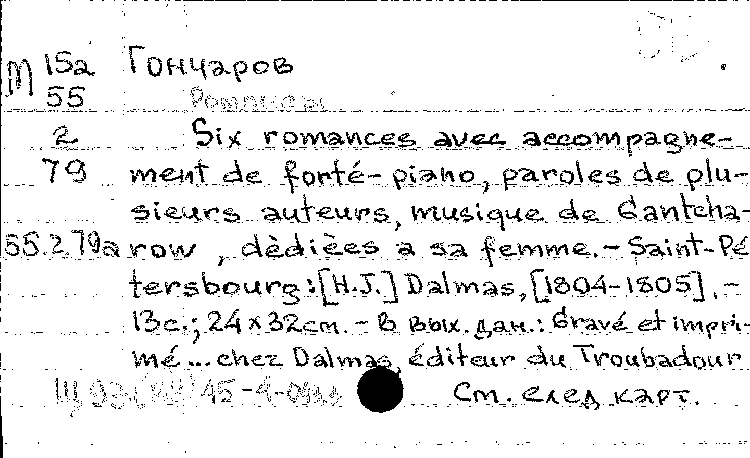 М 15а Гончаров
55 Романсы
2 Six romances avec accompagne-
79 ment de forté-piano, paroles de plu-
sieurs auteurs, musique de Gantcha-
55.2.79а row, dèdièes a sa femme. – Saint-Pé
tersbourg: [H.J.] Dalmas, [1804-1805]. –
13с.; 24x32cm. – В вых. дан.: Gravé et impri-
mé... chez Dalmas, éditeur du Troubadour
Ш 93 45-4- См. след карт.